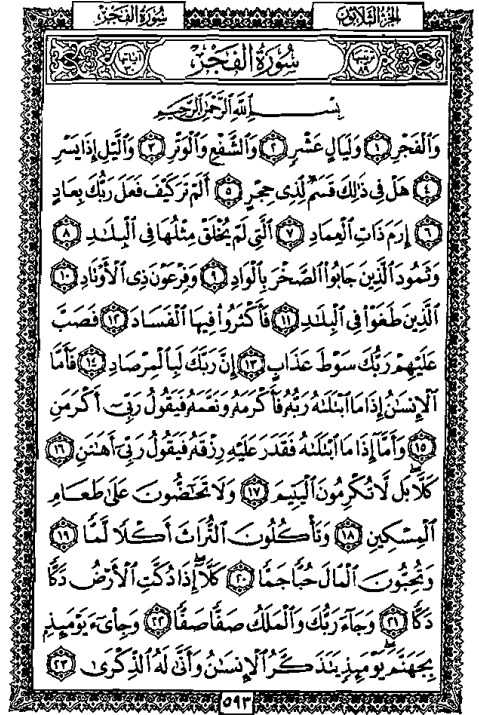 سُورَةُ الفَجْرِ
الجزء الثلاثون
ترتيبها ٨٩
سُورَةُ الفَجْرِ
آياتها ٣٠
بِسْمِ اللَّهِ الرَّحْمَٰنِ الرَّحِيمِ
وَالْفَجْرِ ١ وَلَيَالٍ عَشْرٍ ٢ وَالشَّفْعِ وَالْوَتْرِ ٣ وَاللَّيْلِ إِذَا يَسْرِ
٤ هَلْ فِي ذَٰلِكَ قَسَمٌ لِّذِي حِجْرٍ ٥ أَلَمْ تَرَ كَيْفَ فَعَلَ رَبُّكَ بِعَادٍ
٦ إِرَمَ ذَاتِ الْعِمَادِ ٧ الَّتِي لَمْ يُخْلَقْ مِثْلُهَا فِي الْبِلَٰدِ ٨
وَثَمُودَ الَّذِينَ جَابُوا الصَّخْرَ بِالْوَادِ ٩ وَفِرْعَوْنَ ذِي الْأَوْتَادِ ١٠
الَّذِينَ طَغَوْا فِي الْبِلَٰدِ ١١ فَأَكْثَرُوا فِيهَا الْفَسَادَ ١٢ فَصَبَّ
عَلَيْهِمْ رَبُّكَ سَوْطَ عَذَابٍ ١٣ إِنَّ رَبَّكَ لَبِالْمِرْصَادِ ١٤ فَأَمَّا
الْإِنسَٰنُ إِذَا مَا ابْتَلَىٰهُ رَبُّهُ فَأَكْرَمَهُ وَنَعَّمَهُ فَيَقُولُ رَبِّي أَكْرَمَنِ
١٥ وَأَمَّا إِذَا مَا ابْتَلَىٰهُ فَقَدَرَ عَلَيْهِ رِزْقَهُ فَيَقُولُ رَبِّي أَهَٰنَنِ ١٦
كَلَّا بَل لَّا تُكْرِمُونَ الْيَتِيمَ ١٧ وَلَا تَحَٰضُّونَ عَلَىٰ طَعَامِ
الْمِسْكِينِ ١٨ وَتَأْكُلُونَ التُّرَاثَ أَكْلًا لَّمًّا ١٩
وَتُحِبُّونَ الْمَالَ حُبًّا جَمًّا ٢٠ كَلَّا إِذَا دُكَّتِ الْأَرْضُ دَكًّا
دَكًّا ٢١ وَجَاءَ رَبُّكَ وَالْمَلَكُ صَفًّا صَفًّا ٢٢ وَجِا۟يءَ يَوْمَئِذٍ
بِجَهَنَّمَ يَوْمَئِذٍ يَتَذَكَّرُ الْإِنسَٰنُ وَأَنَّىٰ لَهُ الذِّكْرَىٰ ٢٣
٥٩٣